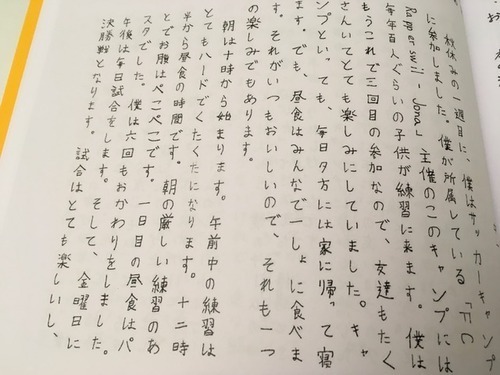 秋休みの一週目に、僕はサッカーキャンプ
に参加しました。僕が所属している「FC
Rapperswil-Jona」主催のこのキャンプには
毎年百人ぐらいの子供が練習に来ます。僕は
もうこれで三回目の参加なので、友達もたく
さんいてとても楽しみにしていました。キャ
ンプといっても、毎日夕方には家に帰って寝
ます。でも、昼食はみんなで一しょに食べま
す。それがいつもおいしいので、それも一つ
の楽しみでもあります。
朝は十時から始まります。午前中の練習は
とてもハードでくたくたになります。十二時
半から昼食の時間です。朝の厳しい練習のあ
とでお腹はぺこぺこです。一日目の昼食はパ
スタでした。僕は六回もおかわりをしました。
午後は毎日試合をします。そして、金曜日に
決勝戦となります。試合はとても楽しいし、